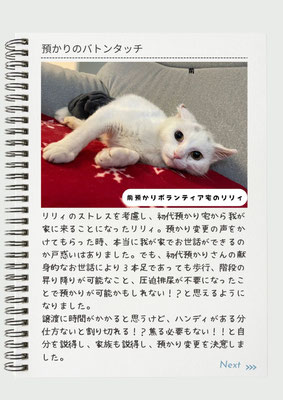 預かりのバトンタッチ
前預かりボランティア宅のリリィ
リリィのストレスを考慮し、初代預かり宅から我が
家に来ることになったリリィ。預かり変更の声をか
けてもらった時、本当に我が家でお世話ができるの
か戸惑いはありました。でも、初代預かりさんの献
身的なお世話により３本足であっても歩行、階段の
昇り降りが可能なこと、圧迫排尿が不要になったこ
とで預かりが可能かもしれない！？と思えるように
なりました。
譲渡に時間がかかると思うけど、ハンディがある分
仕方ないと割り切れる！？焦る必要もない！！と自
分を説得し、家族も説得し、預かり変更を決意しま
した。
Next >>>